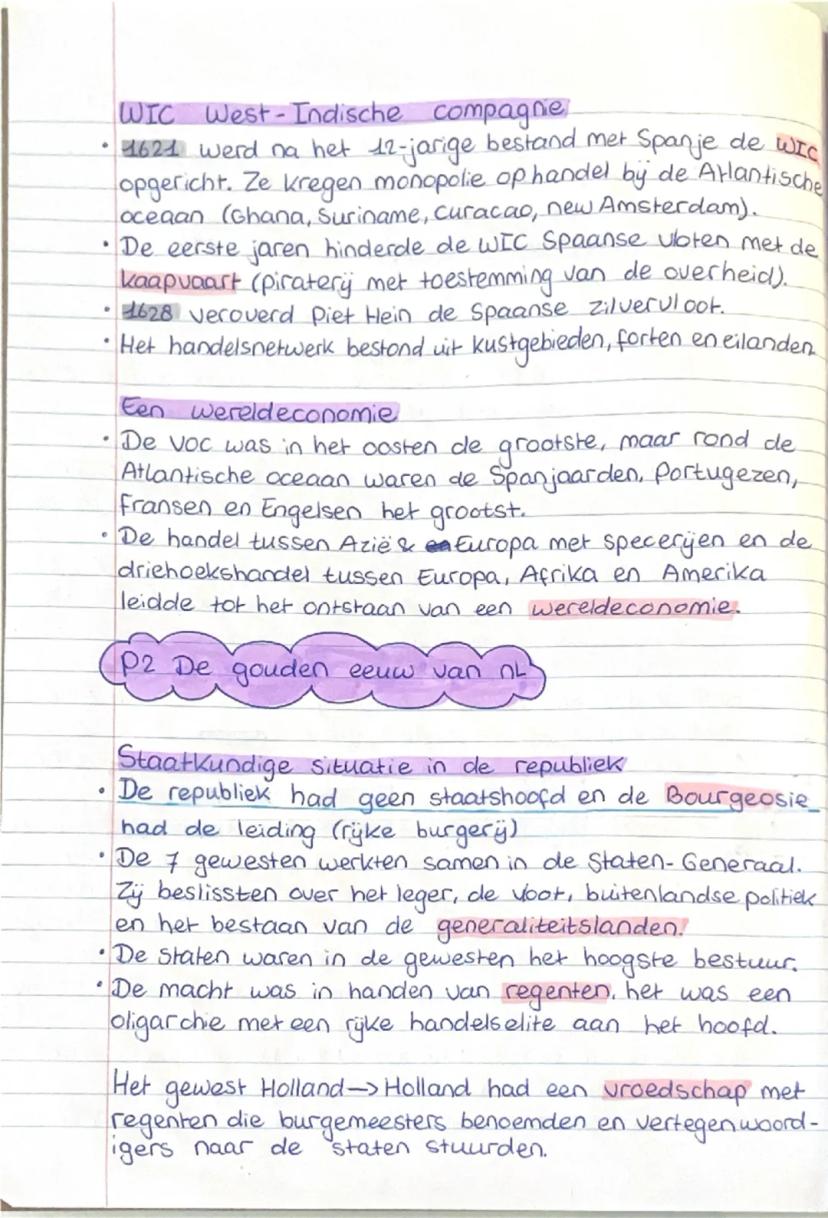 WIC West-Indische compagnie
• 1621 werd na het 12-jarige bestand met Spanje de WIC
opgericht. Ze kregen monopolie op handel bij de Atlantische
oceaan (Ghana, Suriname, curacao, new Amsterdam).
• De eerste jaren hinderde de WIC Spaanse vloten met de
kaapvaart (piraterij met toestemming van de overheid).
• 1628 veroverd Piet Hein de Spaanse zilvervloot.
• Het handelsnetwerk bestond uit kustgebieden, forten en eilanden
Een wereldeconomie
• De VOC was in het oosten de grootste, maar rond de
Atlantische oceaan waren de Spanjaarden, Portugezen,
Fransen en Engelsen het grootst.
• De handel tussen Azië & Europa met specerijen en de
driehoekshandel tussen Europa, Afrika en Amerika
leidde tot het ontstaan van een wereldeconomie.
P2 De gouden eeuw van NL
Staatkundige situatie in de republiek
• De republiek had geen staatshoofd en de Bourgeosie
had de leiding (rijke burgerij)
• De 7 gewesten werkten samen in de Staten-Generaal.
Zij beslissten over het leger, de vloot, buitenlandse politiek
en het bestaan van de generaliteitslanden.
• De Staten waren in de gewesten het hoogste bestuur.
• De macht was in handen van regenten, het was een
oligarchie met een rijke handelselite aan het hoofd.
Het gewest Holland → Holland had een vroedschap met
regenten die burgemeesters benoemden en vertegenwoord-
igers naar de staten stuurden.